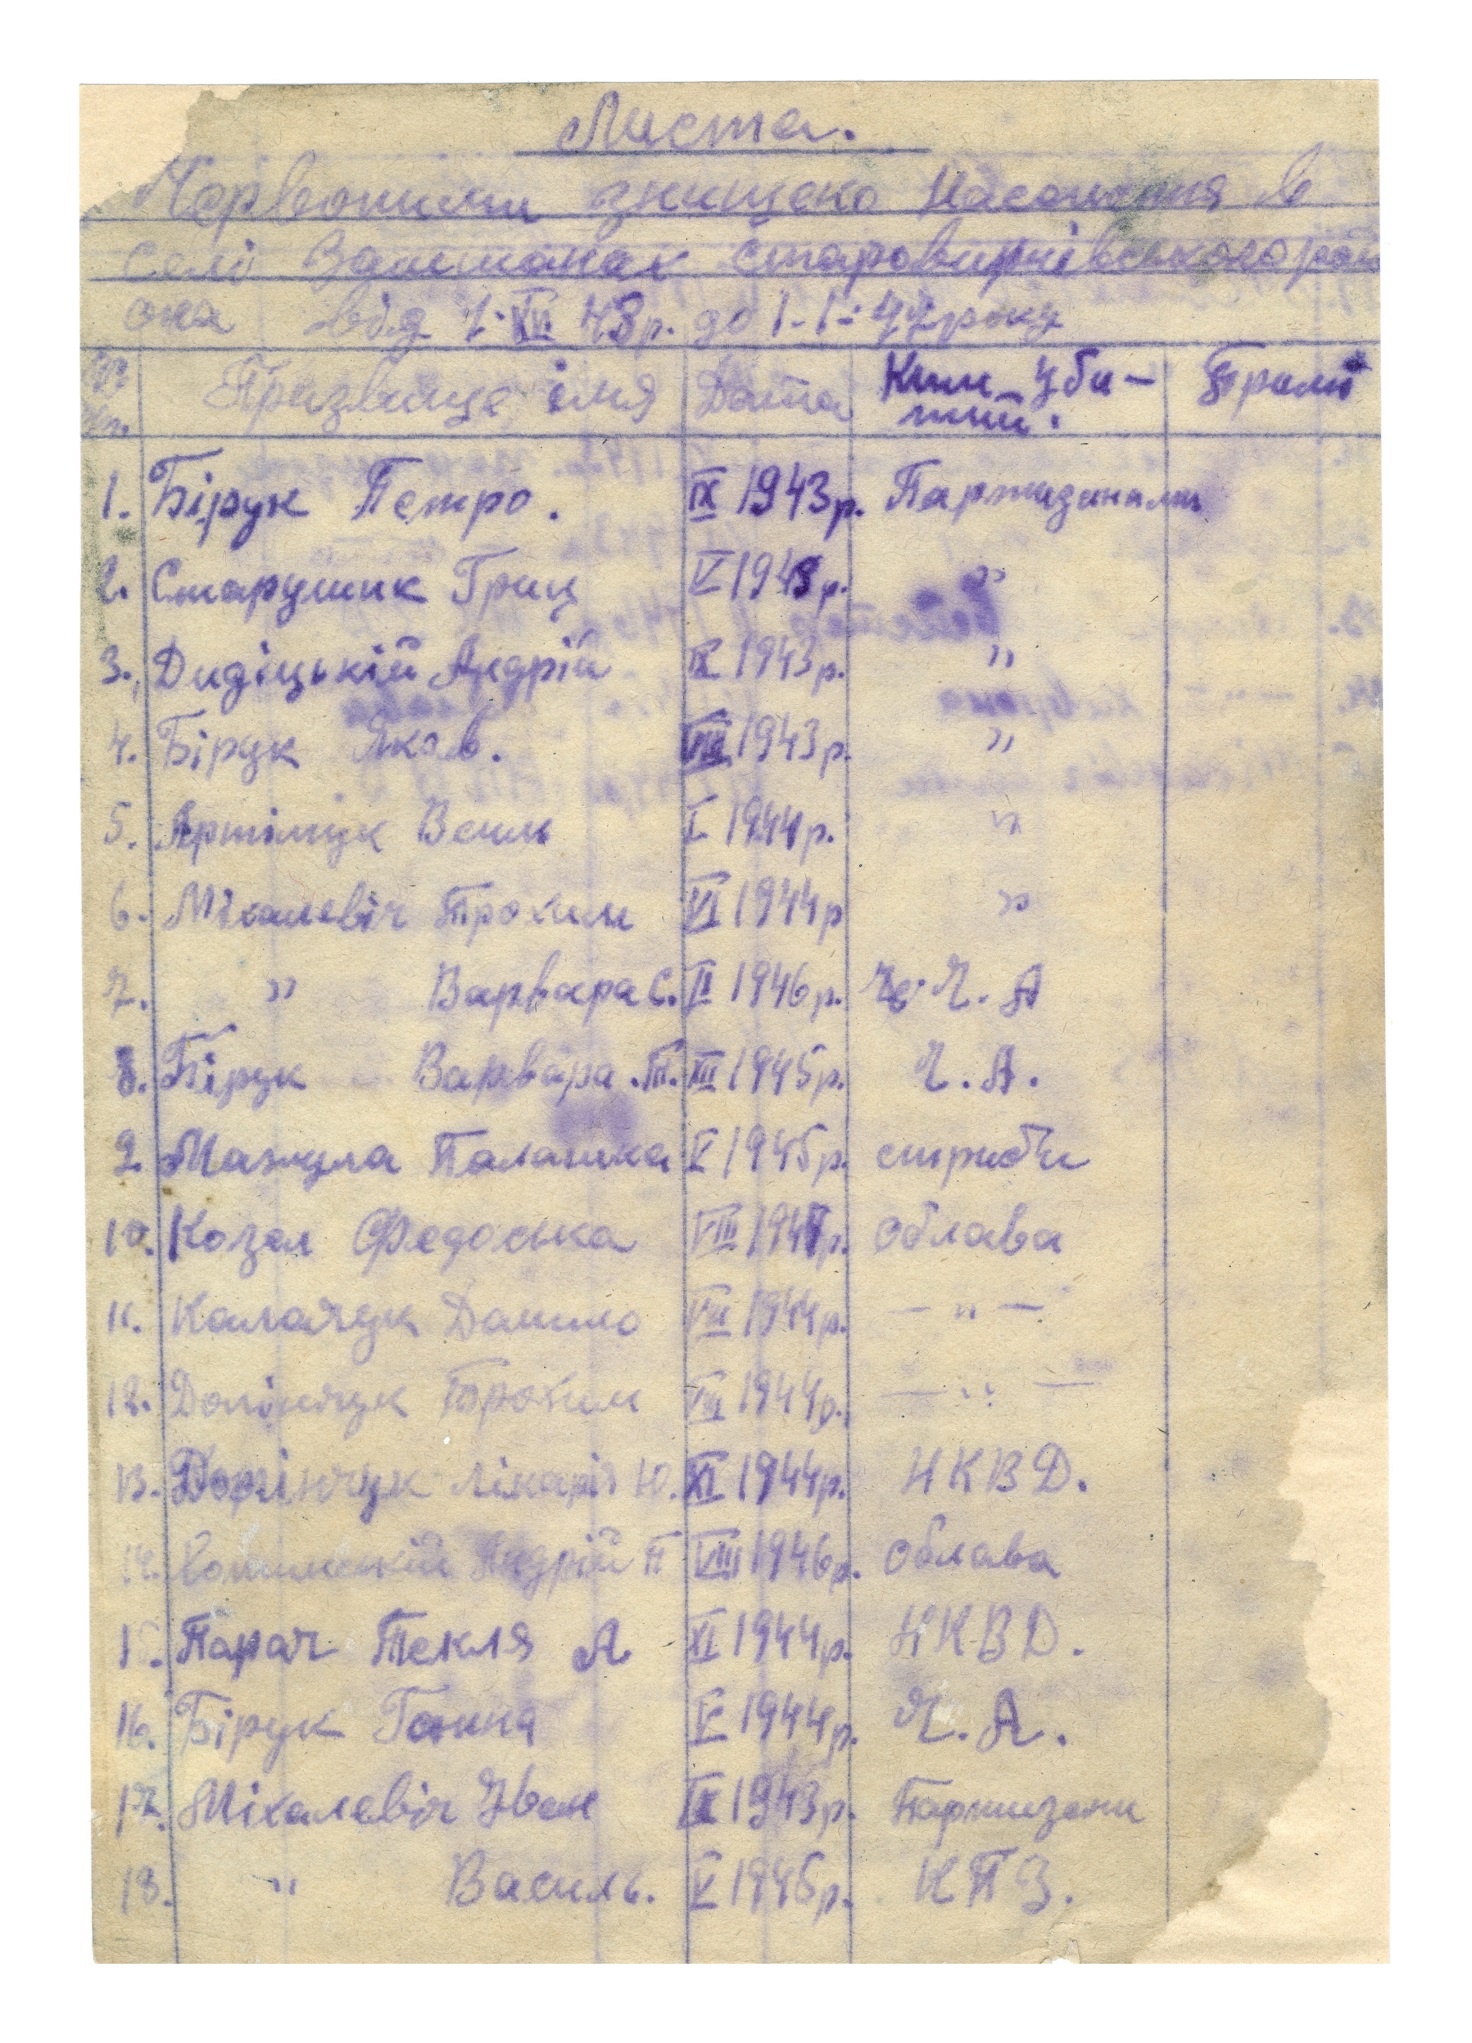 Листа.
Червоними знищено населення в
селі старовижівського рай
она від 1. 43р. до 1-1-47 року
Призвище, імя Дата Ким уби- Прим
тий.
1. Бірук Петро. IX 1943р. Партизанами
2. Старушик Гриц V 1943р. "
3. Дидіцькій Андрій IX 1943р. "
4. Бірук Яков. VIII 1943р. "
5. Артімук 1944р. "
6. Міхалевіч Трохим VI 1944р "
7. " Варвара С. II 1946р. Ч. А
8. Бірук Варвара. П. XII 1945р. Ч. А.
9. Мазгула Палашка V 1945р. стрибки
10. Козел Федоська VIII 1947р. облава
11. Каланчук Данило VIII 1944р. — " —
12. Долінчук Трохим 1944р. — " —
13. Долінчук Ю. XI 1944р. Н К В Д.
14. Андрій П VIII 1946р. облава
15. Парач Текля А XI 1944р. Н К В Д.
16. Бірук Ганна V 1944р. Ч. А.
17. Міхалевіч Іван IX 1943р. Партизани
18. " Василь. V 1945р. К П З.